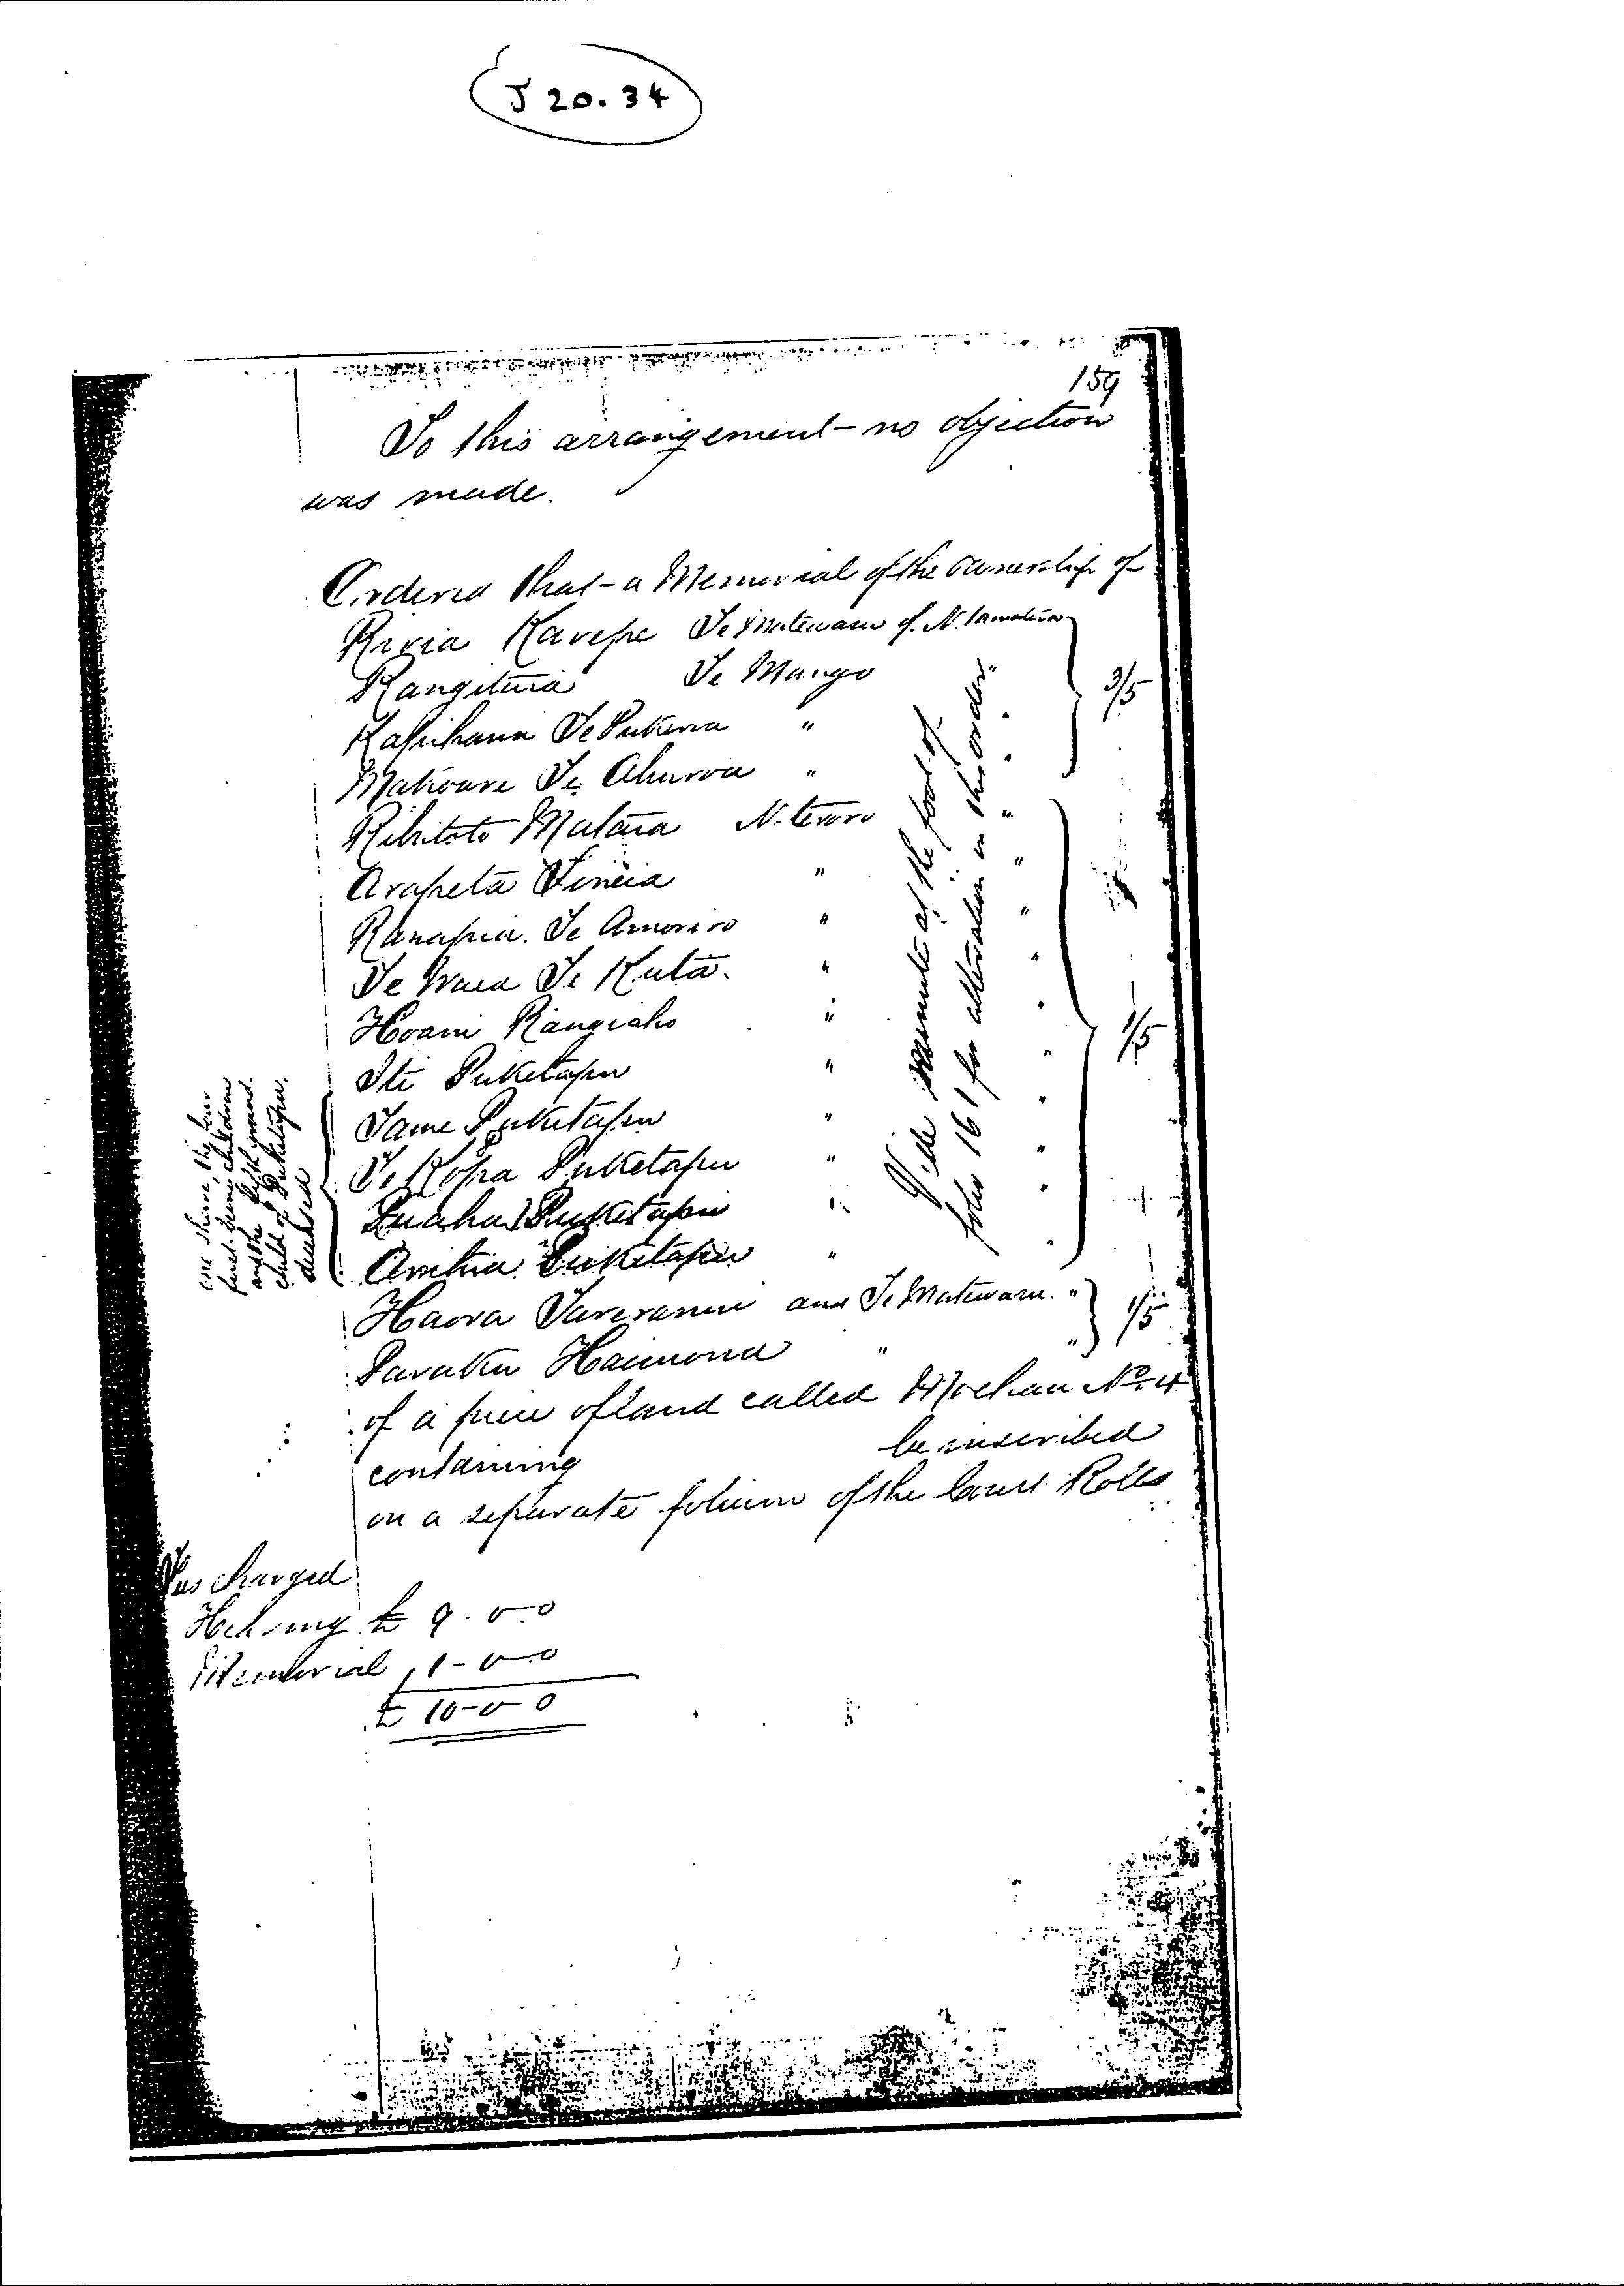 J 20.34
159
To this arrangement - no objection
was made.
Ordered that - a Memorial of the ownership of
Riria Karepe Te Matewaru of N. Tamatera } 3/5
Rangituia Te Mango
Kapihana Te Pukeroa "
Matiours Te Ahuroa "
Rihitoto Mataia N. teroro "
Arapeta Tineia " "
Ranapia Te Amoriro " "
Te Waea Te Kuta. " "
Hoani Rangiaho " " } 1/5
Iti Puketapu " "
Tame Puketapu " "
Te Kopa Puketapu " "
Puaha Puketapu " "
Amiria Puketapu " "
Haora Tareranui and Te Matewaru. " } 1/5
Paraku Haimona " "
of a piece of land called Moehau No. 4
containing be inscribed
on a separate folium of the Court Rolls
one share, the four
first being children
and the fifth grand
child of Puketapu,
deceased
Vide Minute at the foot of
folio 161 for alteration in this order.
Fees charged
Hearing £ 9.0.0
Memorial " 1-0-0
£ 10-0-0